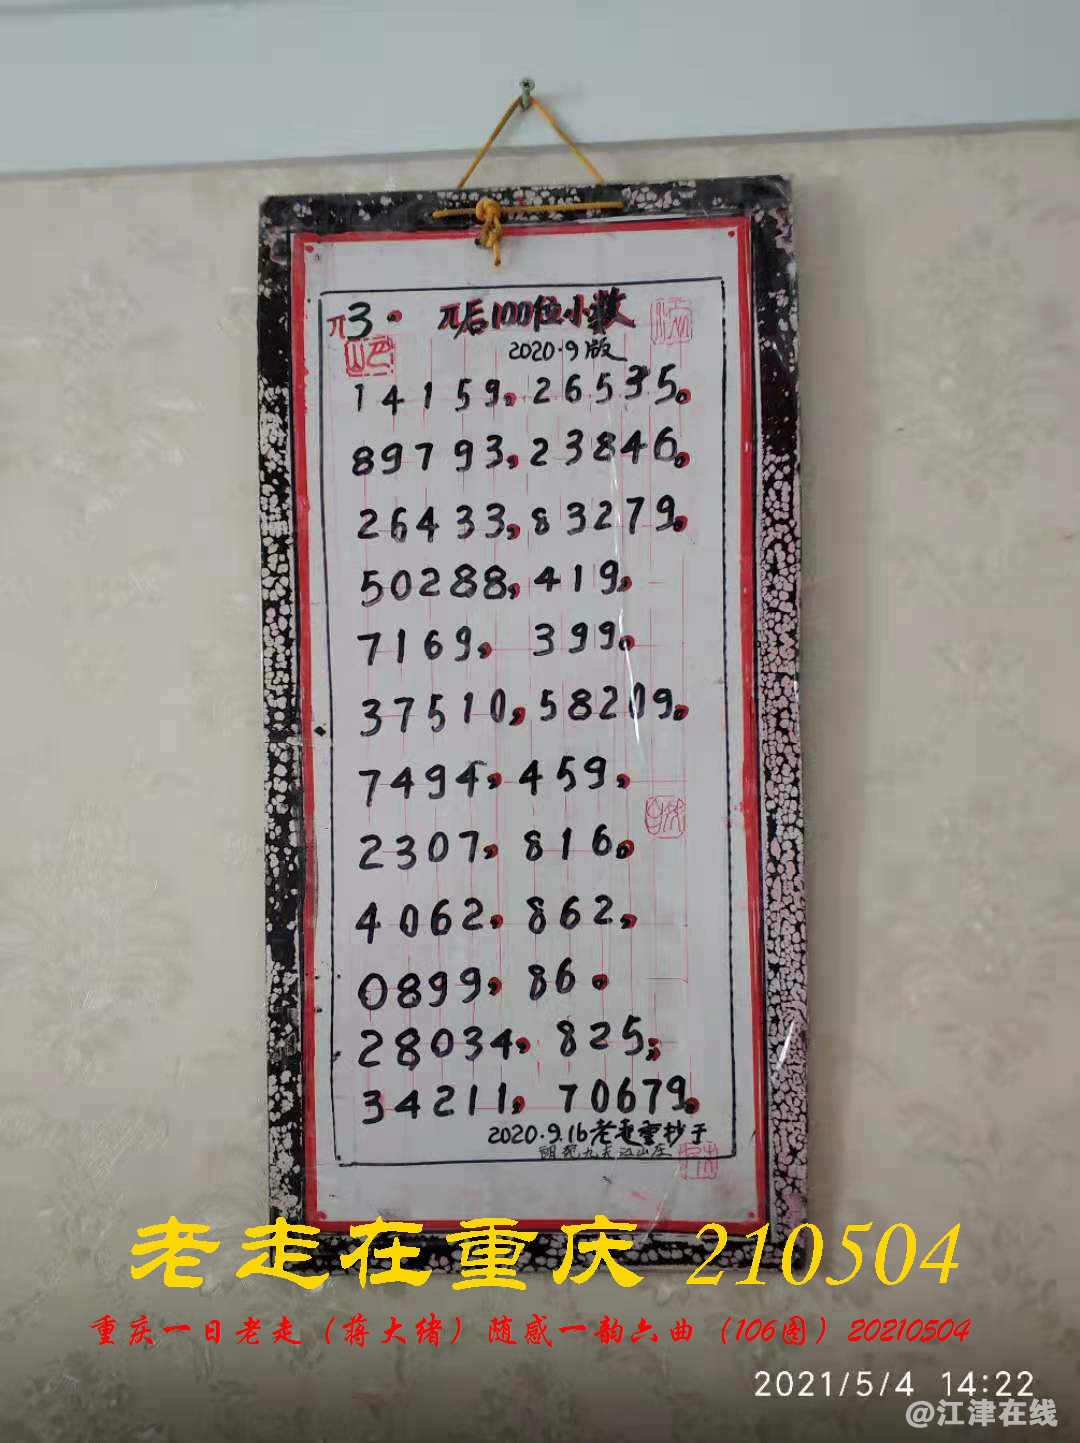 π3. π后100位小数
2020.9版
14159,26535。
89793,23846。
26433,83279。
50288,419,
7169, 399。
37510,58209。
7494,459,
2307,816。
4062,862,
0899,86。
28034,825;
34211, 70679。
2020.9.16老走重抄于
九五江山庄
老走在重庆 210504
重庆一日老走（蒋大绪）随感一韵六曲（106图）20210504
2021/5/4 14:22
@江津在线